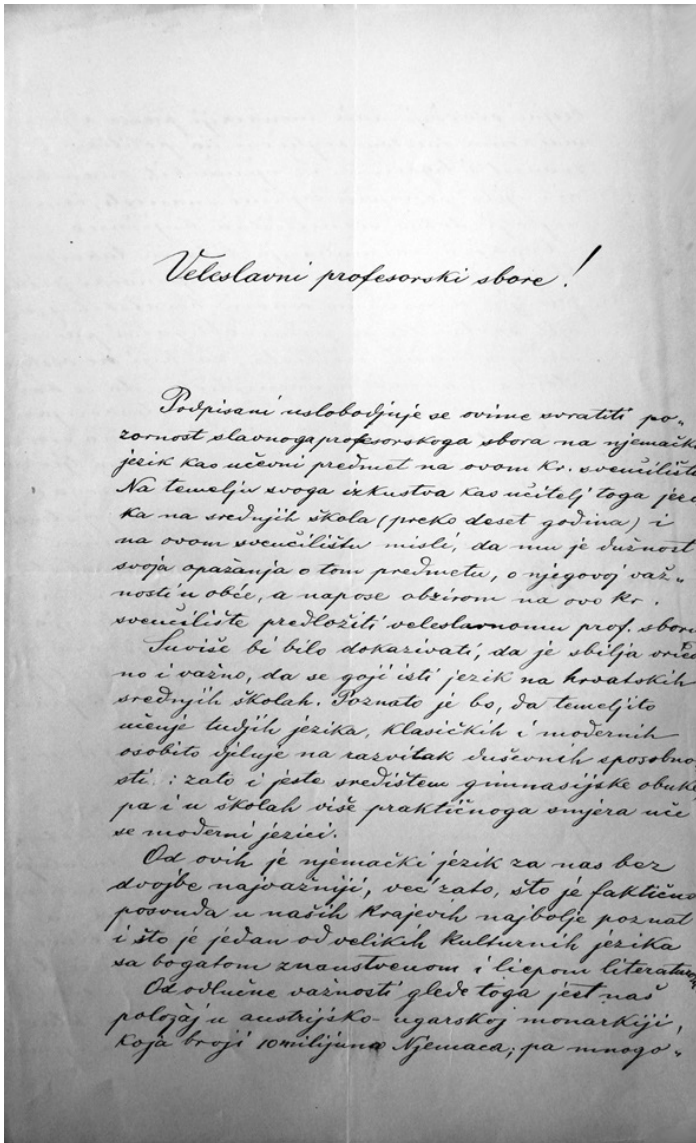 Veleslavni profesorski sbore!
Podpisani uslobodjuje se ovime svratiti po„
zornost slavnoga profesorskoga sbora na njemački
jezik kao učevni predmet na ovom kr. sveučilištu
Na temelju svoga izkustva kao učitelj toga jezi
ka na srednjih škola (preko deset godina) i
na ovom sveučilištu misli, da mu je dužnost
svoja opažanja o tom predmetu, o njegovoj važ„
nosti u obće, a napose obzirom na ovo kr.
sveučilište predložiti veleslavnomu prof. sboru
Suviše bi bilo dokazivati, da je sbilja vried
no i važno, da se goji isti jezik na hrvatskih
srednjih školah. Poznato je bo, da temeljito
učenje tudjih jezika, klasičkih i modernih
osobito djeluje na razvitak duševnih sposobno
sti.: zato i jeste središtem gimnasijske obuke
pa i u školah više praktičnoga smjera uče
se moderni jezici.
Od ovih je njemački jezik za nas bez
dvojbe najvažniji, već zato, što je faktično
posvuda u naših krajevih najbolje poznat
i što je jedan od velikih kulturnih jezika
sa bogatom znanstvenom i liepom literaturom
Od odlučne važnosti glede toga jest naš
položaj u austrijsko-ugarskoj monarkiji,
koja broji 10 milijuna Njemaca; pa mnogo„